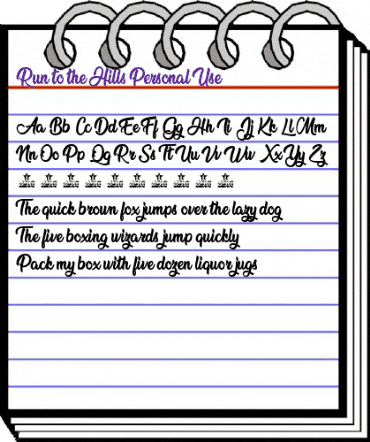 Run to the Hills Personal Use
Aa Bb Cc Dd Ee Ff Gg Hh Ii Jj Kk Ll Mm
Nn Oo Pp Qq Rr Ss Tt Uu Vv Ww Xx Yy Zz
The quick brown fox jumps over the lazy dog
The five boxing wizards jump quickly
Pack my box with five dozen liquor jugs